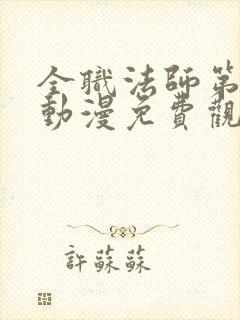 全職法師第
動漫免費觀
許蘇蘇